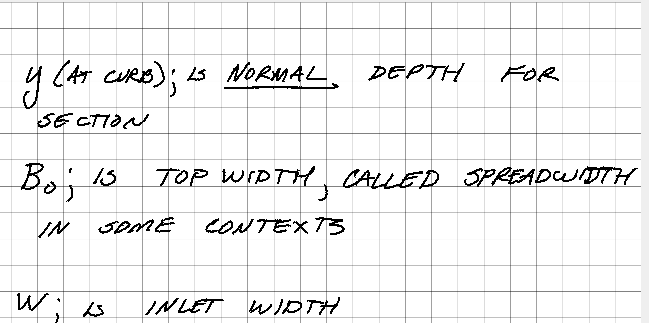 y (AT CURB); IS NORMAL DEPTH FOR
SECTION
B₀; IS TOP WIDTH, CALLED SPREADWIDTH
IN SOME CONTEXTS
W; IS INLET WIDTH